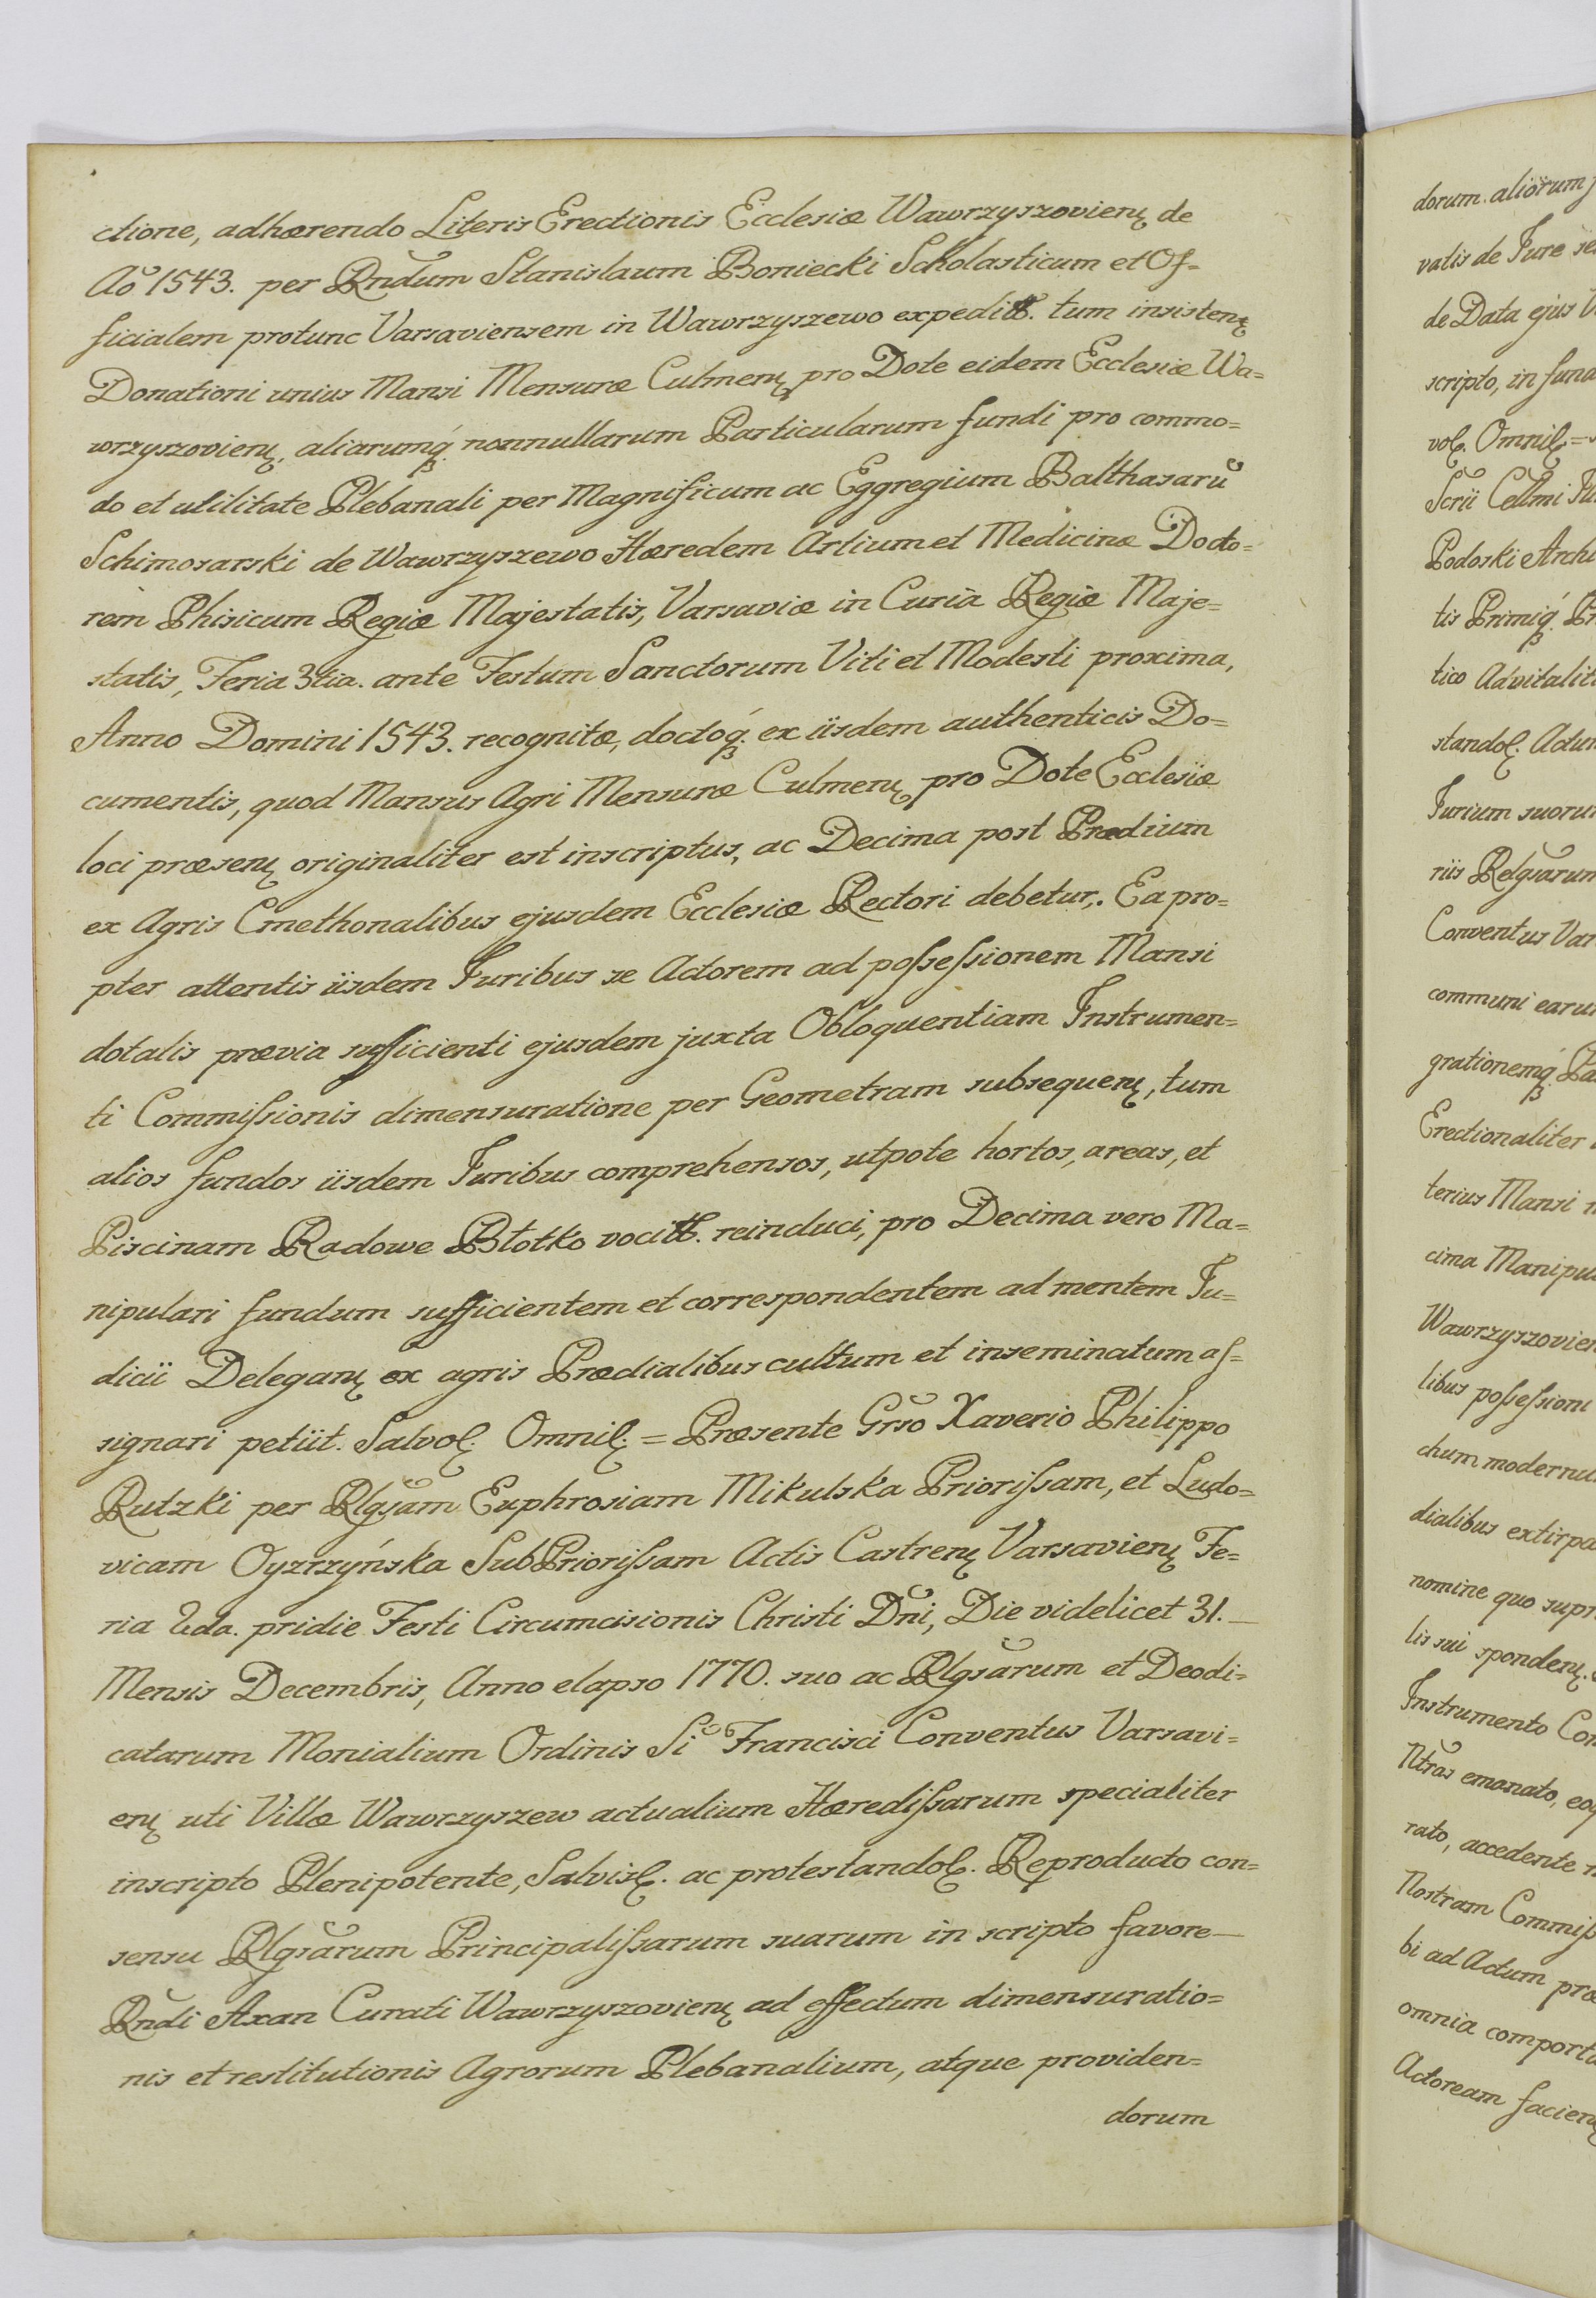 ctione, adhærendo Literis Erectionis Ecclesiæ Wawrzyszovienꝫ de
Aõ 1543. per Rndum Stanislaum Boniecki Scholasticum et Of=
ficialem protunc Varsaviensem in Wawrzyszewo expeditt. tum insistenꝫ
Donationi unius Mansi Mensuræ Culmenꝫ pro Dote eidem Ecclesiæ Wa=
wrzyszovienꝫ, aliarumq́ꝫ nonnullarum Particularum fundi pro commo=
do et utilitate Plebanali per Magnificum ac Eggregium Balthasarũ
Schimosarski de Wawrzyszewo Hæredem Artium et Medicinæ Docto=
rem Phisicum Regiæ Majestatis, Varsaviæ in Curia Regiæ Maje=
statis, Feria 3tia. ante Festum Sanctorum Viti et Modesti proxima,
Anno Domini 1543. recognitæ, doctoq́ꝫ. ex iisdem authenticis Do=
cumentis, quod Mansus Agri Mensuræ Culmenꝫ pro Dote Ecclesiæ
loci præsenꝫ originaliter est inscriptus, ac Decima post Prædium
ex Agris Cmethonalibus ejusdem Ecclesiæ Rectori debetur,. Ea pro=
pter attentis iisdem Juribus se Actorem ad poſseſsionem Mansi
dotalis prævia sufficienti ejusdem juxta Obloquentiam Instrumen=
ti Commiſsionis dimensuratione per Geometram subsequenꝫ, tum
alios fundos iisdem Juribus comprehensos, utpote hortos, areas, et
Piscinam Radowe Błotko vocitt. reinduci, pro Decima vero Ma=
nipulari fundum sufficientem et correspondentem ad mentem Ju=
dicii Deleganꝫ ex agris Prædialibus cultum et inseminatum aſ=
signari petiit. Salvoꝫ. Omniꝫ. = Præsente Grso Xaverio Philippo
Rutzki per Rlgsam Euphrosiam Mikulska Prioriſsam, et Ludo=
vicam Oyzrzyńska SubPrioriſsam Actis Castrenꝫ Varsavienꝫ Fe=
ria 2da. pridie Festi Circumcisionis Christi Dñi, Die videlicet 31. —
Mensis Decembris, Anno elapso 1770. suo ac Rlgsarum et Deodi=
catarum Monialium Ordinis Si Francisci Conventus Varsavi=
enꝫ uti Villæ Wawrzyszew actualium Hærediſsarum specialiter
inscripto Plenipotente, Salvisꝫ. ac protestandoꝫ. Reproducto con=
sensu Rlgsarum Principaliſsarum suarum in scripto favore —
Rndi Axan Curati Wawrzyszovienꝫ ad effectum dimensuratio=
nis et restitutionis Agrorum Plebanalium, atque providen=
dorum
dorum. aliorum
vatis de Jure
de Data ejus
scripto, in
Podoski
Jurium
Conventus
communi
Erectionaliter
terius Mansi
cima
libus poſseſsioni
dialibus
nomine quo
lis sui spondenꝫ.
Instrumento
emanato,
rato, accedente
Nostram
bi ad Actum
omnia
Actoream